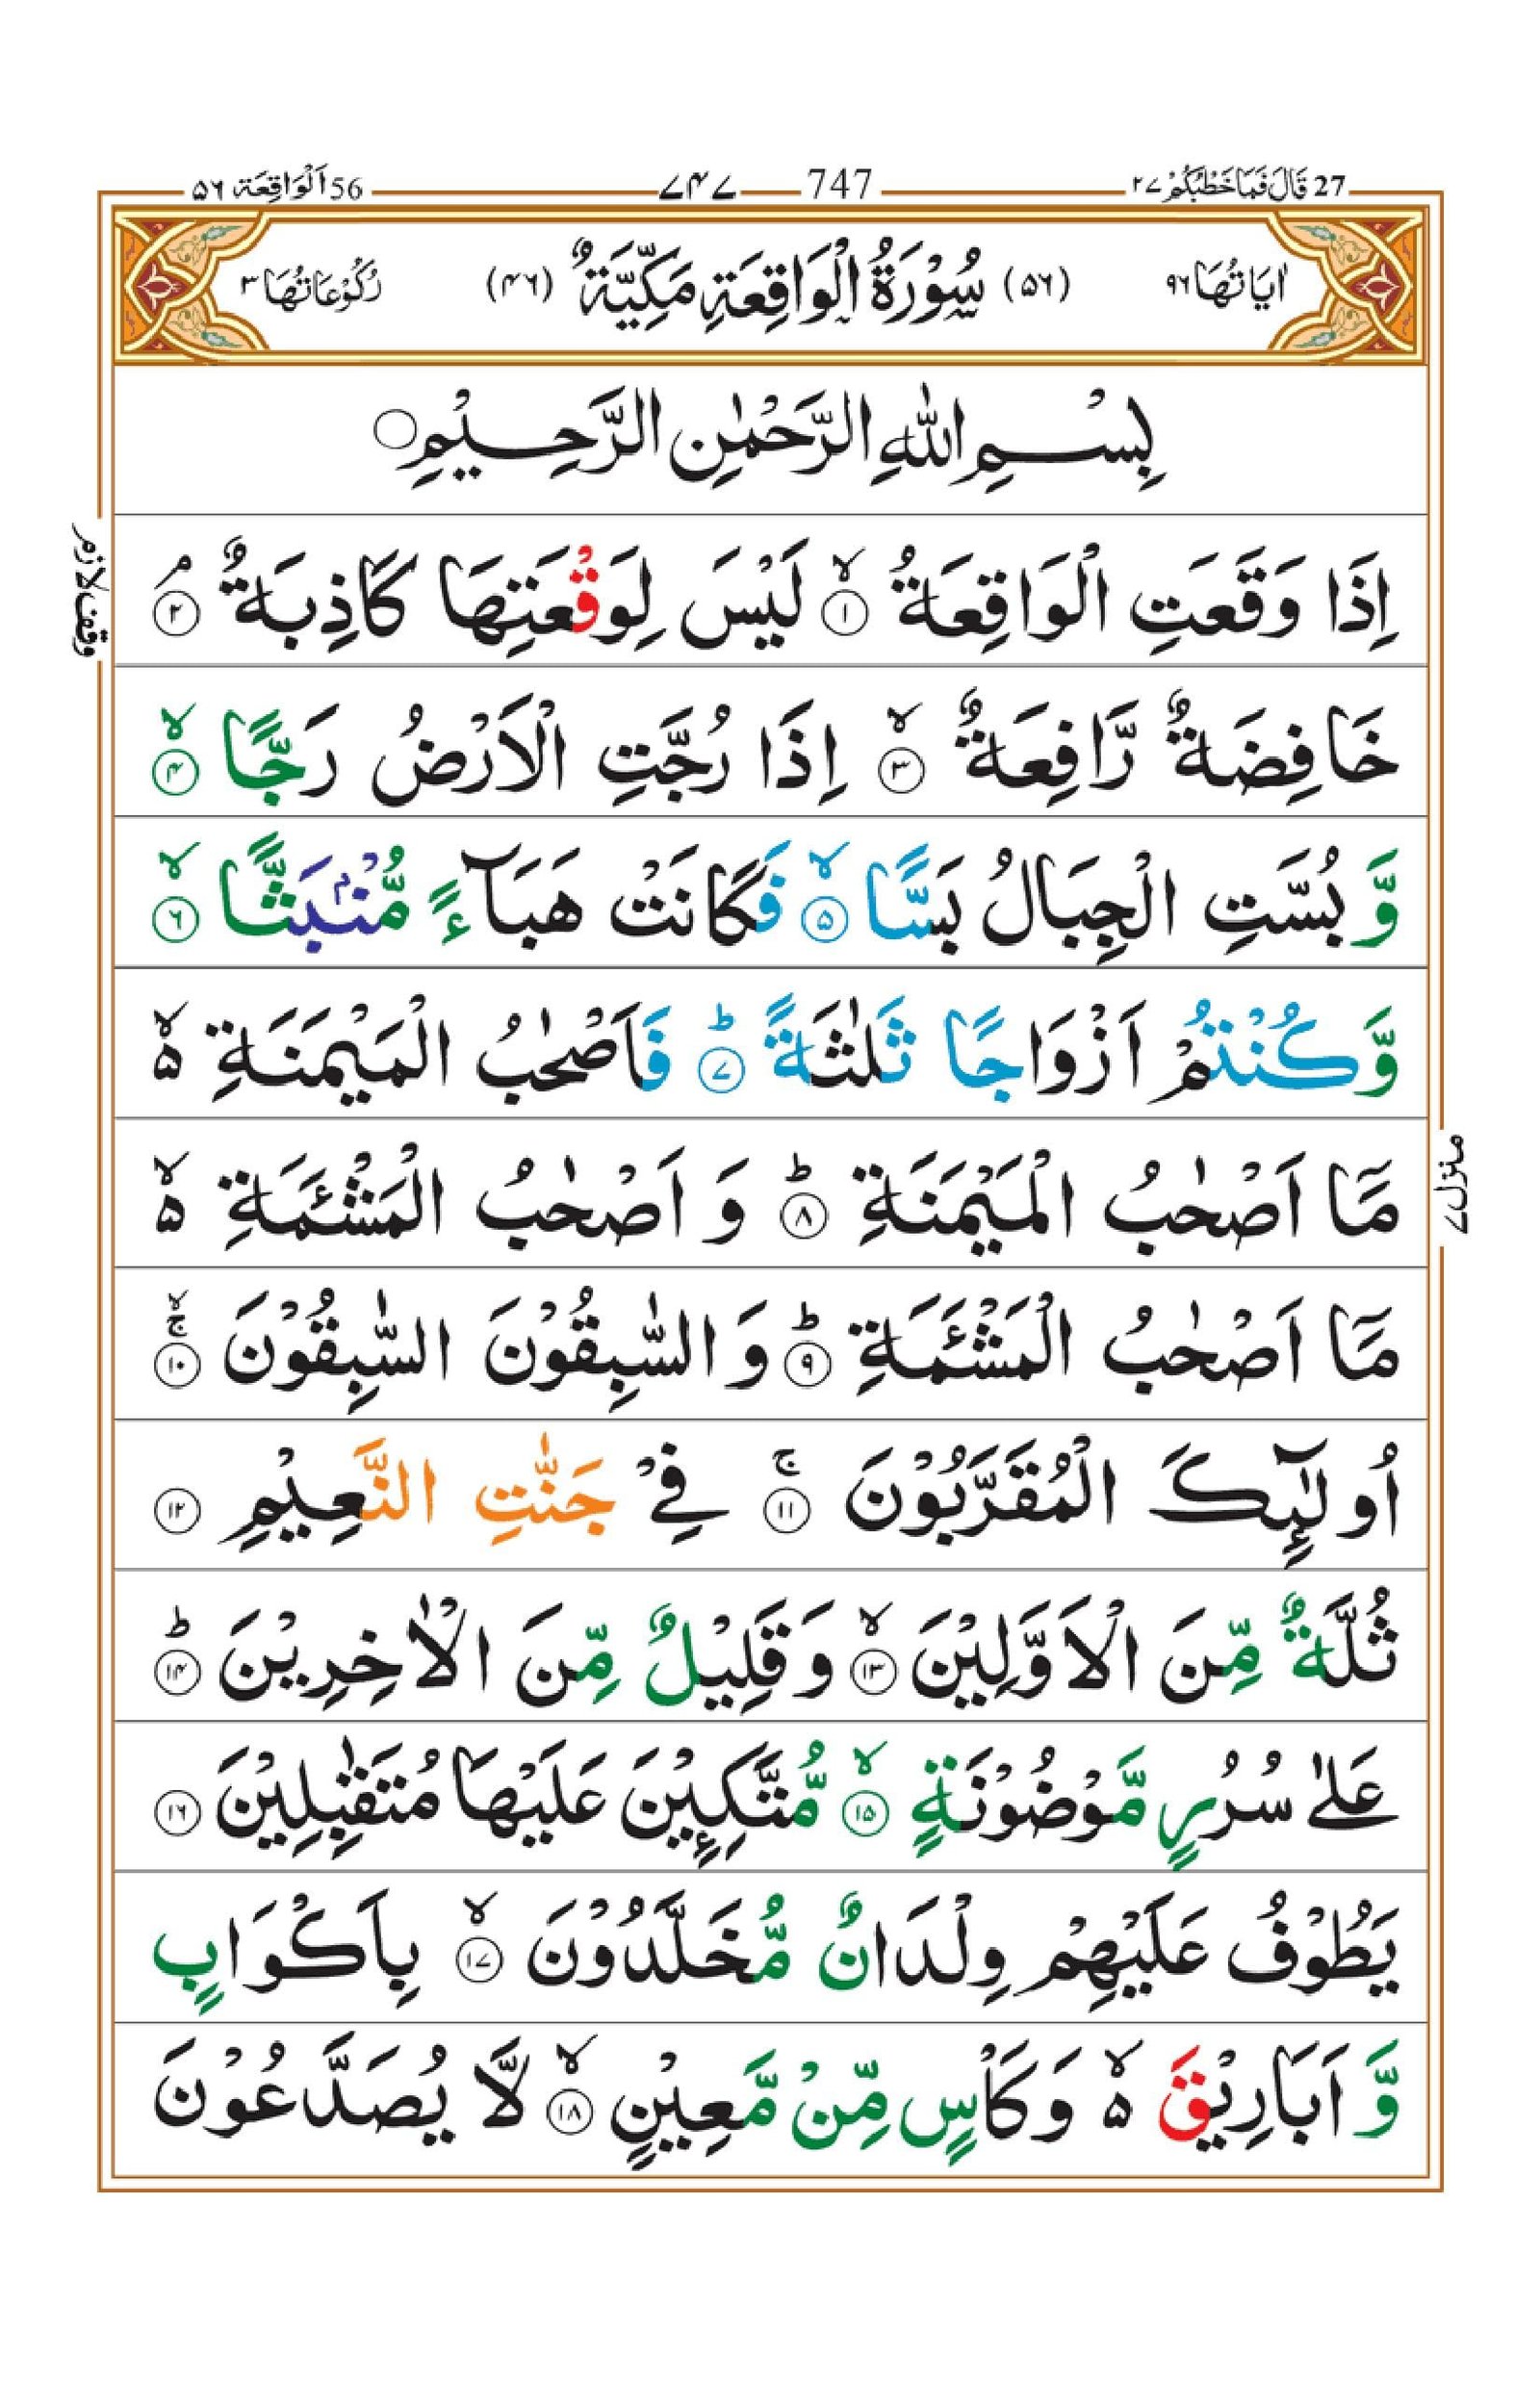 27 قَالَ فَمَا خَطْبُكُمْ ۲۷ 747 ۷۴۷ 56 اَلْوَاقِعَة ۵۶
اٰيَاتُهَا ۹۶ (۵۶) سُوْرَةُ الْوَاقِعَةِ مَكِّيَّةٌ (۴۶) رُكُوْعَاتُهَا ۳
بِسْمِ اللهِ الرَّحْمٰنِ الرَّحِيْمِ
اِذَا وَقَعَتِ الْوَاقِعَةُ ۙ۱ لَيْسَ لِوَقْعَتِهَا كَاذِبَةٌ ۘ۲
وقف لازم
خَافِضَةٌ رَّافِعَةٌ ۙ۳ اِذَا رُجَّتِ الْاَرْضُ رَجًّا ۙ۴
وَّ بُسَّتِ الْجِبَالُ بَسًّا ۙ۵ فَكَانَتْ هَبَآءً مُّنْۢبَثًّا ۙ۶
وَّ كُنْتُمْ اَزْوَاجًا ثَلٰثَةً ؕ۷ فَاَصْحٰبُ الْمَيْمَنَةِ ۙ۵
مَاۤ اَصْحٰبُ الْمَيْمَنَةِ ؕ۸ وَ اَصْحٰبُ الْمَشْـَٔمَةِ ۙ۵
منزل ۷
مَاۤ اَصْحٰبُ الْمَشْـَٔمَةِ ؕ۹ وَ السّٰبِقُوْنَ السّٰبِقُوْنَ ۚۙ۱۰
اُولٰٓئِكَ الْمُقَرَّبُوْنَ ۚ۱۱ فِيْ جَنّٰتِ النَّعِيْمِ ۱۲
ثُلَّةٌ مِّنَ الْاَوَّلِيْنَ ۙ۱۳ وَ قَلِيْلٌ مِّنَ الْاٰخِرِيْنَ ؕ۱۴
عَلٰى سُرُرٍ مَّوْضُوْنَةٍ ۙ۱۵ مُّتَّكِـِٕيْنَ عَلَيْهَا مُتَقٰبِلِيْنَ ۱۶
يَطُوْفُ عَلَيْهِمْ وِلْدَانٌ مُّخَلَّدُوْنَ ۙ۱۷ بِاَكْوَابٍ
وَّ اَبَارِيْقَ ۙ۵ وَ كَاْسٍ مِّنْ مَّعِيْنٍ ۙ۱۸ لَّا يُصَدَّعُوْنَ